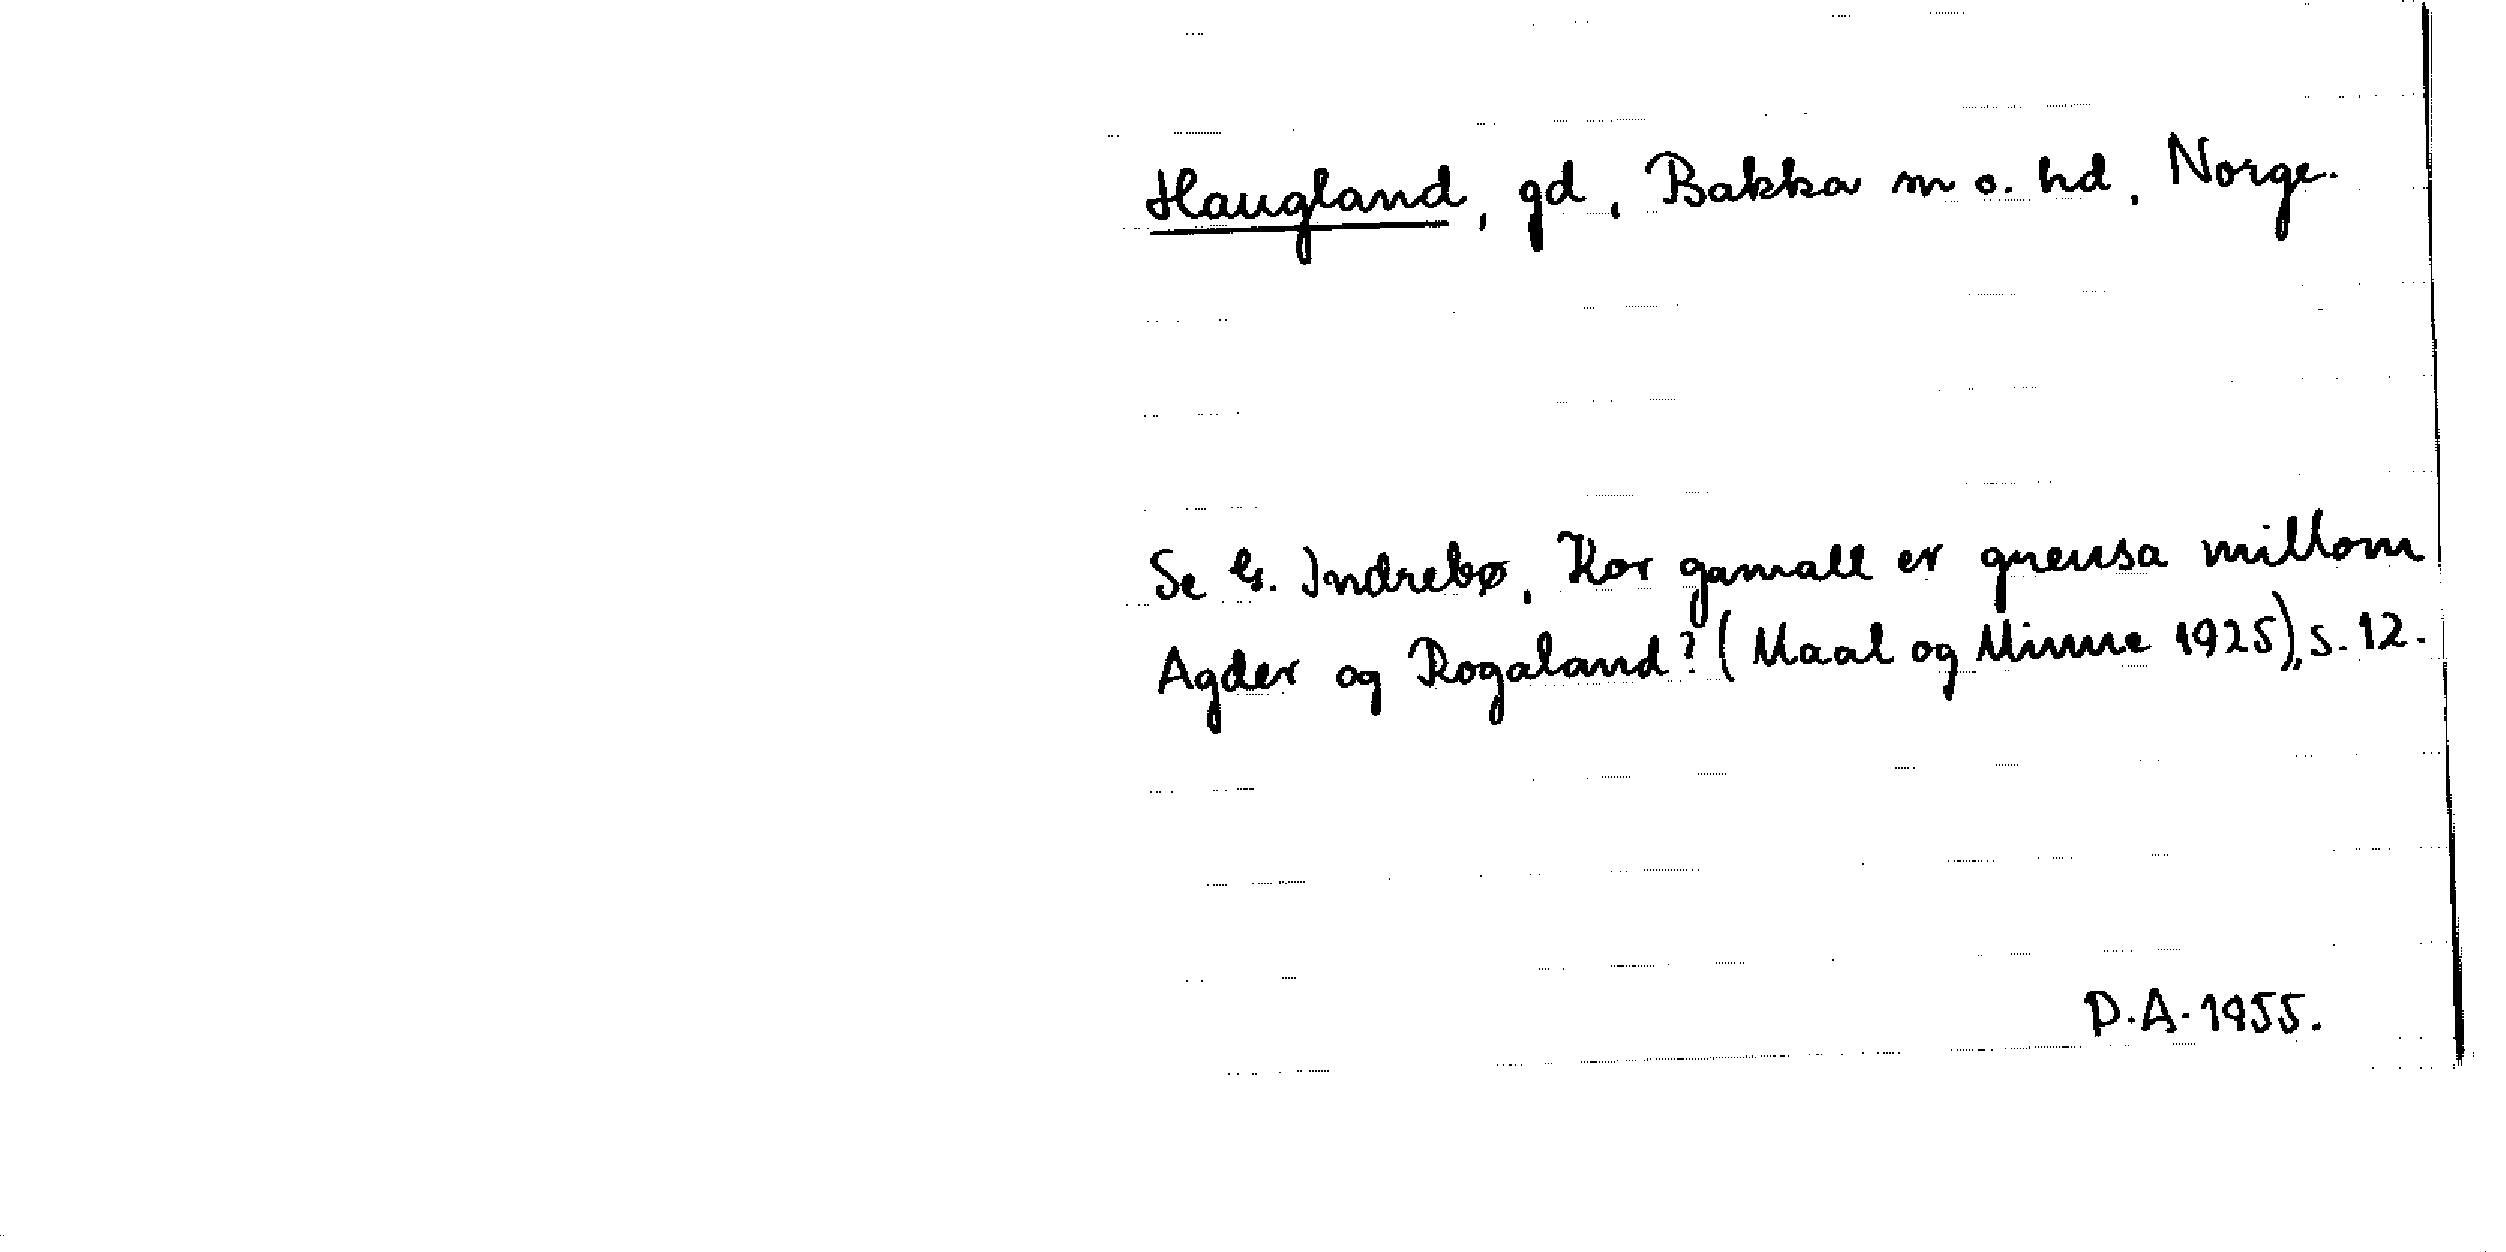 Haugland, gd, Bakka sn o. hd, Norge.
Se G. Indrebø, Kor gamall er grensa millom
Agder og Rogaland? (Maal og Minne 1925), s. 12.
D.A. 1955.